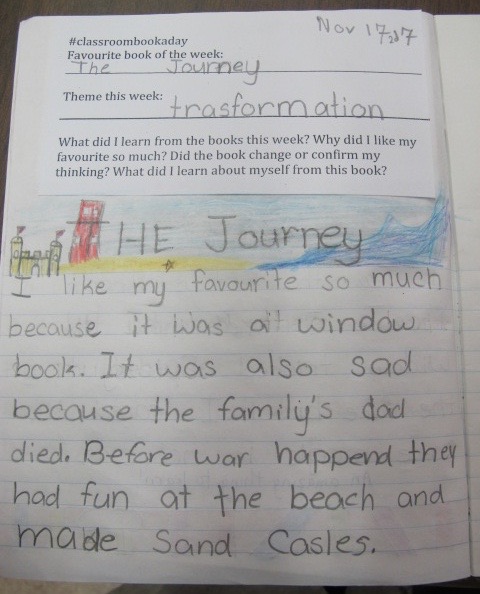 Nov 17, 2017
#classroombookaday
Favourite book of the week:
The Journey
Theme this week: trasformation
What did I learn from the books this week? Why did I like my
favourite so much? Did the book change or confirm my
thinking? What did I learn about myself from this book?
THE Journey
I like my favourite so much
because it was a window
book. It was also sad
because the family's dad
died. Before war happend they
had fun at the beach and
made Sand Casles.